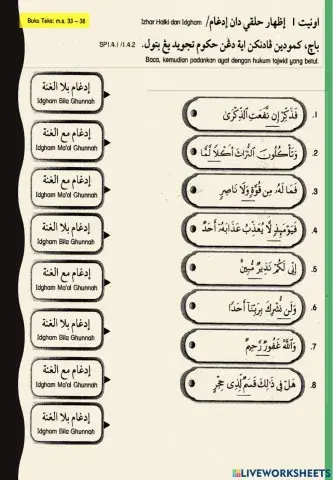 Buku Teks: m.s. 33 – 38
Izhar Halki dan Idgham / اونيت ١ إظهار حلقي دان إدغام
SP1.4.1 / 1.4.2 باچ، کمودين ڤادنکن اية دڠن حکوم تجويد يڠ بتول.
Baca, kemudian padankan ayat dengan hukum tajwid yang betul.
إدغام بلا الغنة
Idgham Bila Ghunnah
إدغام مع الغنة
Idgham Ma'al Ghunnah
إدغام مع الغنة
Idgham Ma'al Ghunnah
إدغام بلا الغنة
Idgham Bila Ghunnah
إدغام مع الغنة
Idgham Ma'al Ghunnah
إدغام بلا الغنة
Idgham Bila Ghunnah
إدغام مع الغنة
Idgham Ma'al Ghunnah
إدغام بلا الغنة
Idgham Bila Ghunnah
.1 فَذَكِّرْ إِن نَّفَعَتِ ٱلذِّكْرَىٰ
.2 وَتَأْكُلُونَ ٱلتُّرَاثَ أَكْلًا لَّمًّا
.3 فَمَا لَهُۥ مِن قُوَّةٍ وَلَا نَاصِرٍ
.4 فَيَوْمَئِذٍ لَّا يُعَذِّبُ عَذَابَهُۥٓ أَحَدٌ
.5 إِنِّي لَكُمْ نَذِيرٌ مُّبِينٌ
.6 وَلَن نُّشْرِكَ بِرَبِّنَآ أَحَدًا
.7 وَٱللَّهُ غَفُورٌ رَّحِيمٌ
.8 هَلْ فِي ذَٰلِكَ قَسَمٌ لِّذِي حِجْرٍ
LIVEWORKSHEETS